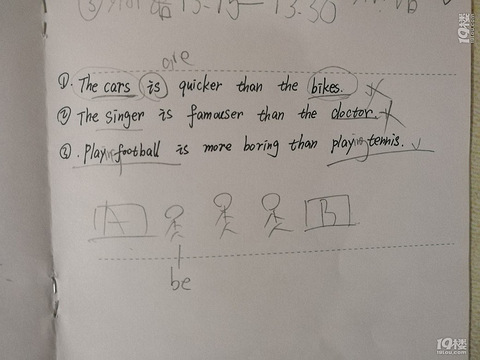 13:15—13:30
are
①. The cars is quicker than the bikes.
② The singer is famouser than the doctor.
③. Playing football is more boring than playing tennis.
A B
be
19楼
19lou.com